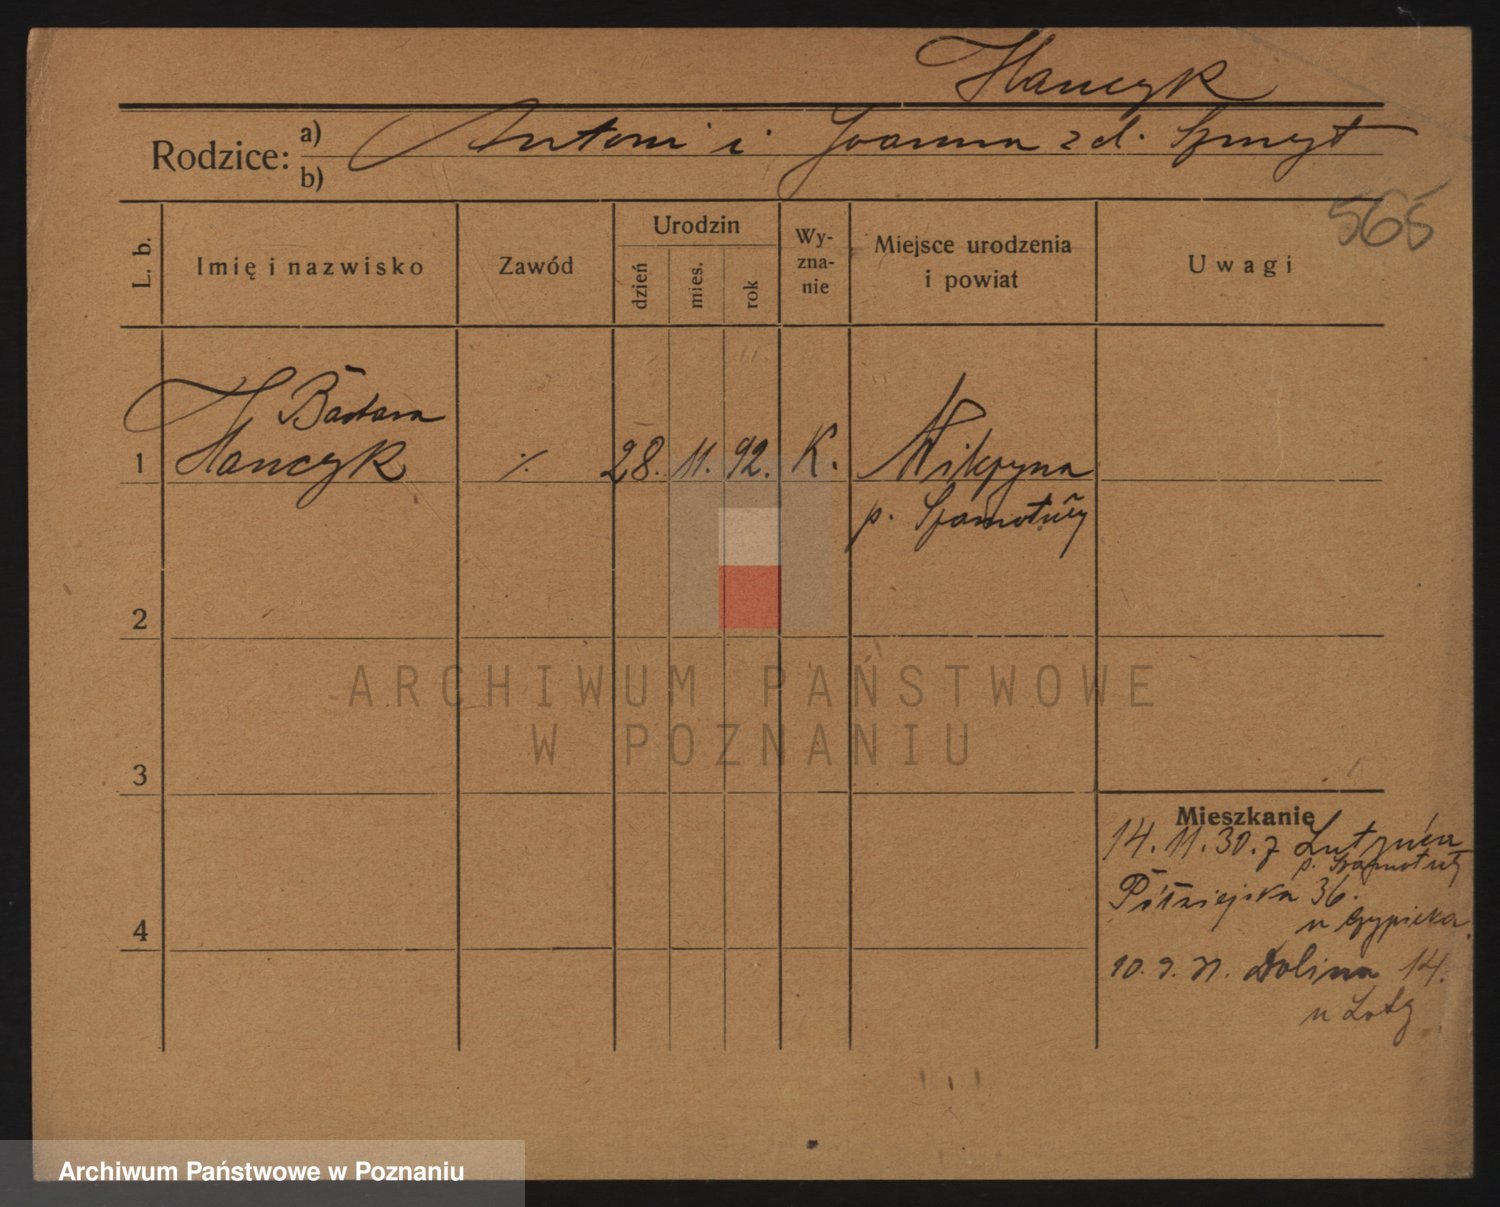 Hanczyk
Rodzice: a) Antoni i Joanna z d. Szmyt
b)
565
L. b.
Imię i nazwisko
Zawód
Urodzin
dzień
mies.
rok
Wy-
zna-
nie
Miejsce urodzenia
i powiat
Uwagi
Barbara
1 Hanczyk ./. 28. 11. 92. K.
p. Szamotuły
2
ARCHIWUM PAŃSTWOWE
W POZNANIU
3
Mieszkanie
14. 11. 30. z
p. Szamotuły
Półwiejska 36.
u
10. 9. 31. Dolina 14.
u
4
Archiwum Państwowe w Poznaniu